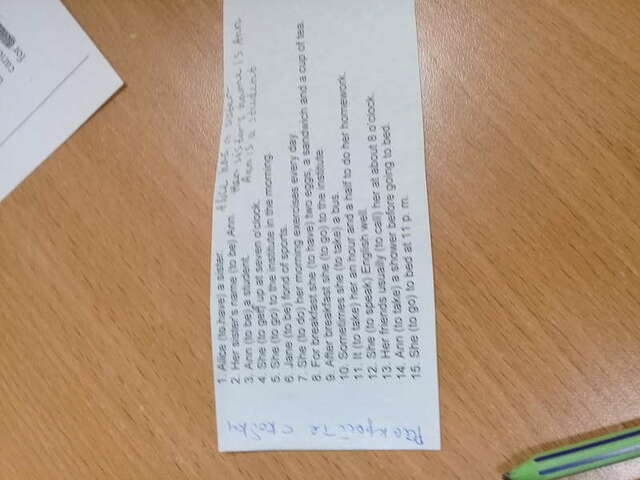 for
Раскройте скобки
1. Alice (to have) a sister.
Alice has a sister
2. Her sister's name (to be) Ann.
Her sister's name is Ann
3. Ann (to be) a student.
Ann is a student
4. She (to get) up at seven o'clock.
5. She (to go) to the institute in the morning.
6. Jane (to be) fond of sports.
7. She (to do) her morning exercises every day.
8. For breakfast she (to have) two eggs, a sandwich and a cup of tea.
9. After breakfast she (to go) to the institute.
10. Sometimes she (to take) a bus.
11. It (to take) her an hour and a half to do her homework.
12. She (to speak) English well.
13. Her friends usually (to call) her at about 8 o'clock.
14. Ann (to take) a shower before going to bed.
15. She (to go) to bed at 11 p. m.